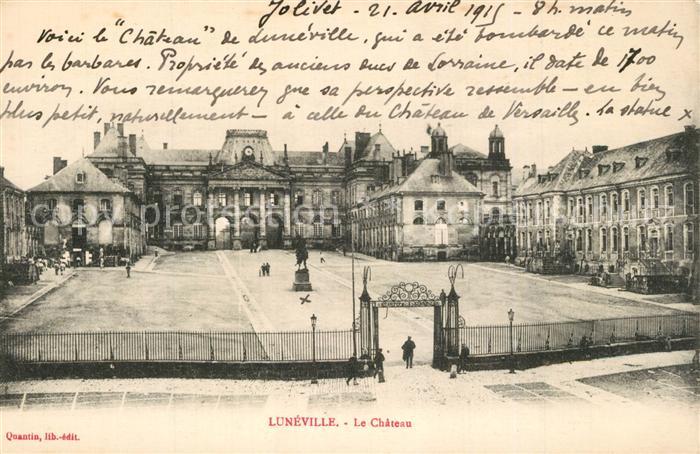 Jolivet - 21. Avril 1915 - 8h. matin
Voici le "Château" de Lunéville, qui a été bombardé ce matin
par les barbares. Propriété des anciens ducs de Lorraine, il date de 1700
environ. Vous remarquerez que sa perspective ressemble - en bien
plus petit, naturellement - à celle du Château de Versailles. La statue
x
x
LUNÉVILLE. - Le Château
Quantin, lib.-édit.